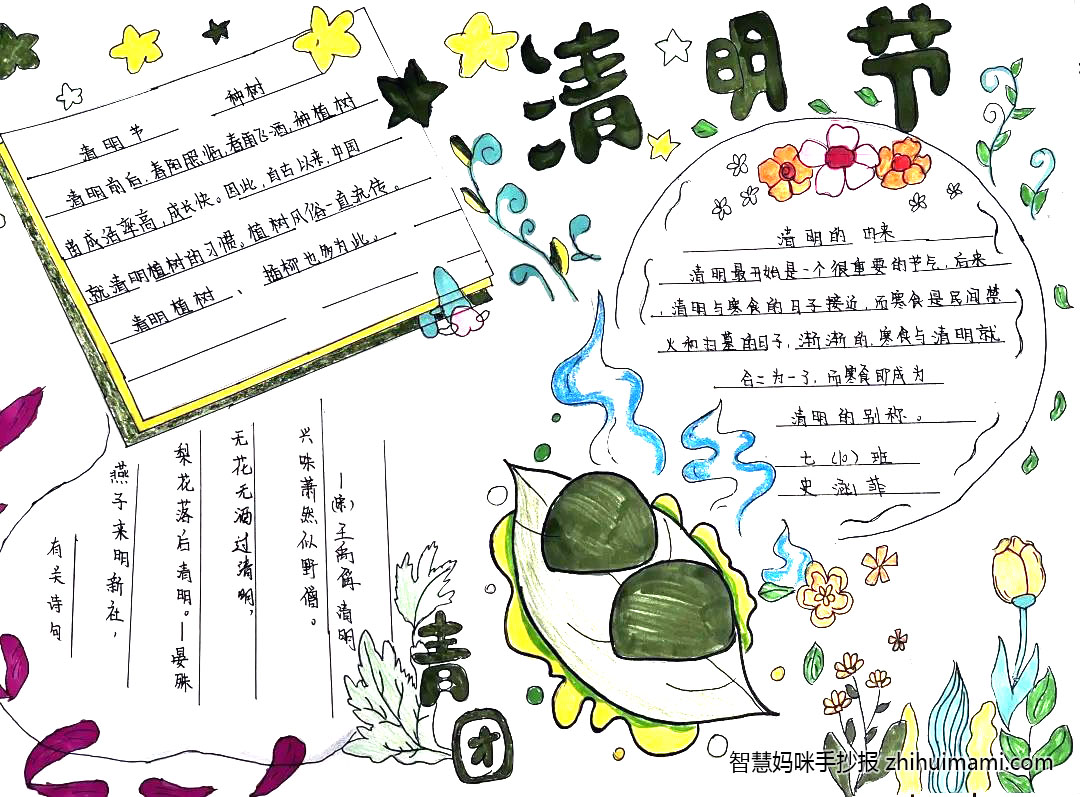 清明节
清明节 种树
清明前后，春阳照临，春雨飞洒，种植树
苗成活率高，成长快。因此，自古以来，中国
就清明植树的习惯。植树风俗一直流传。
清明植树、插柳也多为此。
清明的由来
清明最开始是一个很重要的节气，后来
，清明与寒食的日子接近，而寒食是民间禁
火和扫墓的日子，渐渐的，寒食与清明就
合二为一了，而寒食即成为
清明的别称。
七（10）班
史涵菲
有关诗句
燕子来明新社，
梨花落后青明。—晏殊
无花无酒过清明，
兴味萧然似野僧。
—（宋）王禹偁 清明
青团
智慧妈咪手抄报 zhihuimami.com